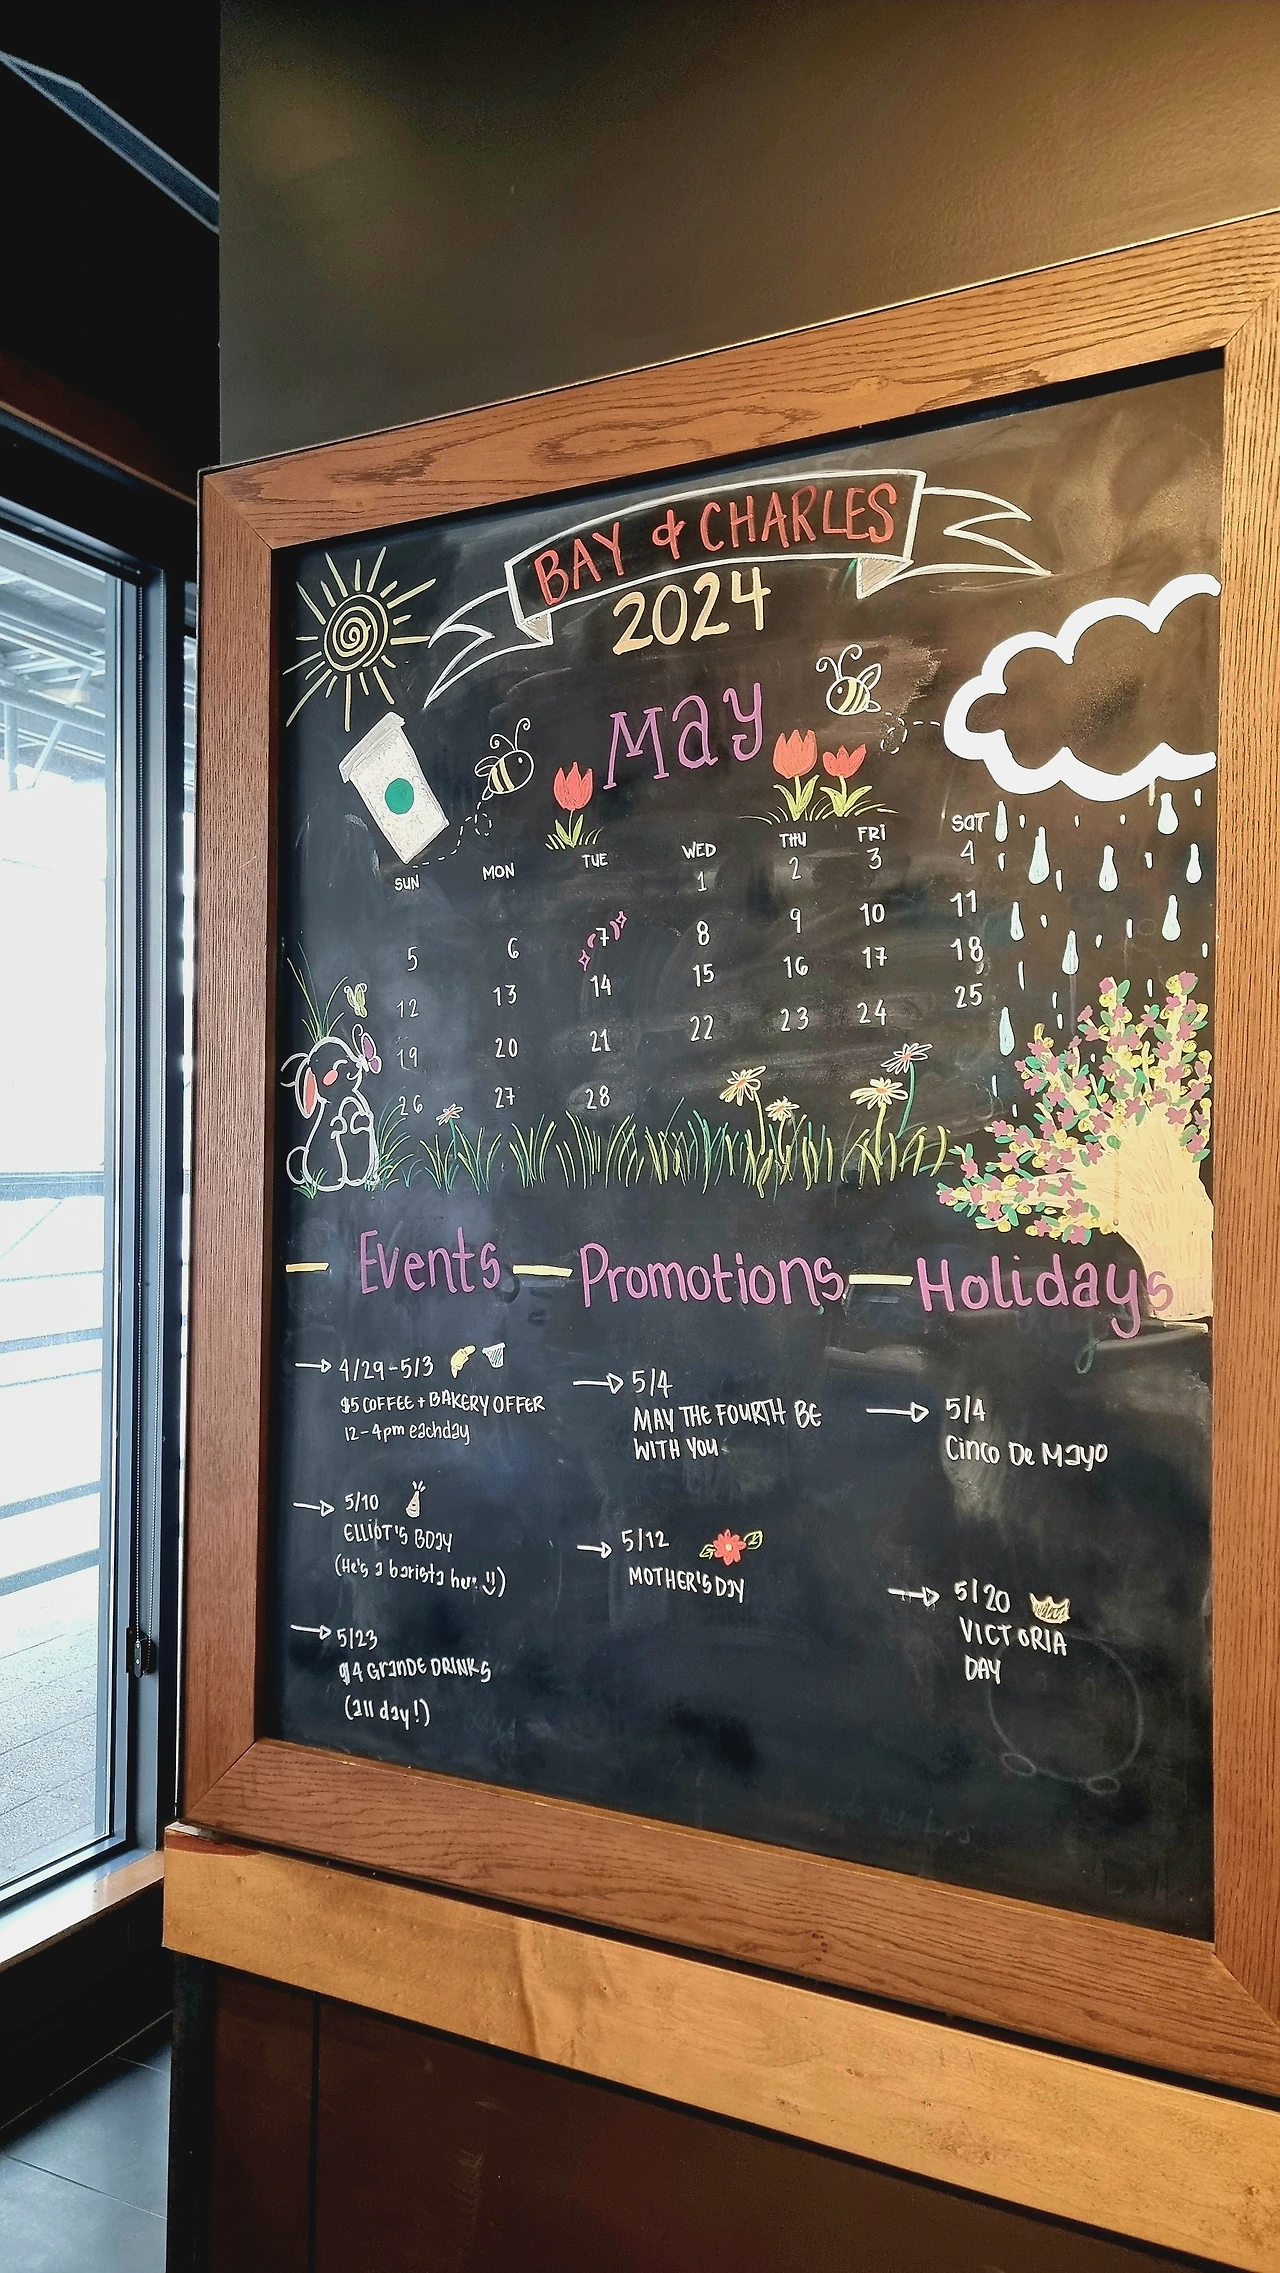 BAY & CHARLES
2024
May
SUN MON TUE WED THU FRI SAT
1 2 3 4
5 6 7 8 9 10 11
12 13 14 15 16 17 18
19 20 21 22 23 24 25
26 27 28
Events Promotions Holidays
4/29-5/3
$5 COFFEE + BAKERY OFFER
12-4pm eachday
5/10
ELLIOT'S BDAY
(He's a barista here)
5/23
$4 Grande DRINKS
(all day!)
5/4
MAY THE FOURTH BE
WITH YOU
5/12
MOTHER'S DAY
5/4
Cinco De Mayo
5/20
VICTORIA
DAY